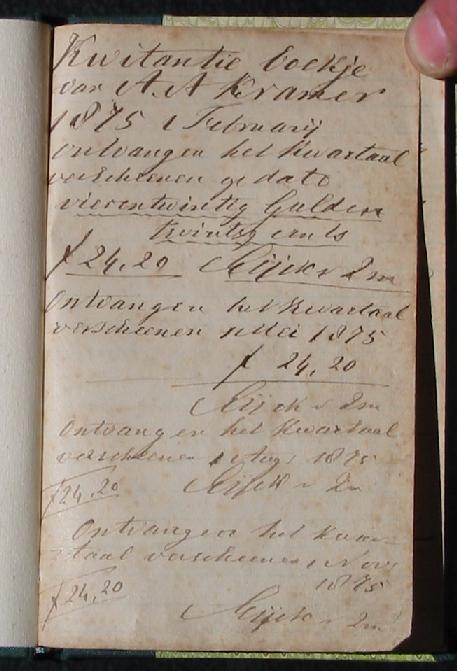 Kwitantie boekje
van A. A Kramer
1875 1 Februarij
ontvangen het Kwartaal
verscheenen op dato
vierentwintig Gulden
twintig cents
f 24,20
Ontvangen het Kwartaal
verscheenen Mei 1875
f 24,20
Ontvangen het Kwartaal
verscheenen 1 Aug 1875
f 24,20
Ontvangen het kwar-
taal verscheenen 1 Nov
1875
f 24,20